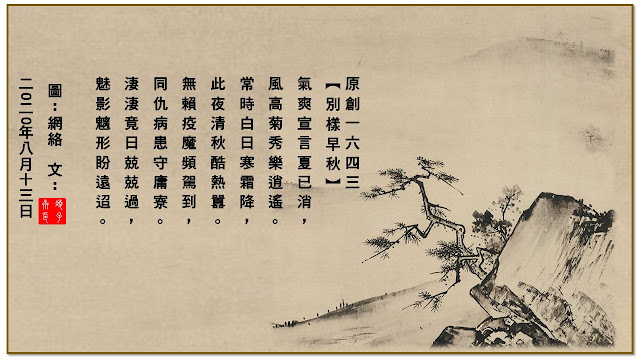 原創一六四三
【別樣早秋】
氣爽宣言夏已消，
風高菊秀樂逍遙。
常時白日寒霜降，
此夜清秋酷熱囂。
無賴疫魔頻駕到，
同仇病患守庸寮。
淒淒竟日兢兢過，
魅影魑形盼遠迢。
圖：網絡 文：
二〇二〇年八月十三日